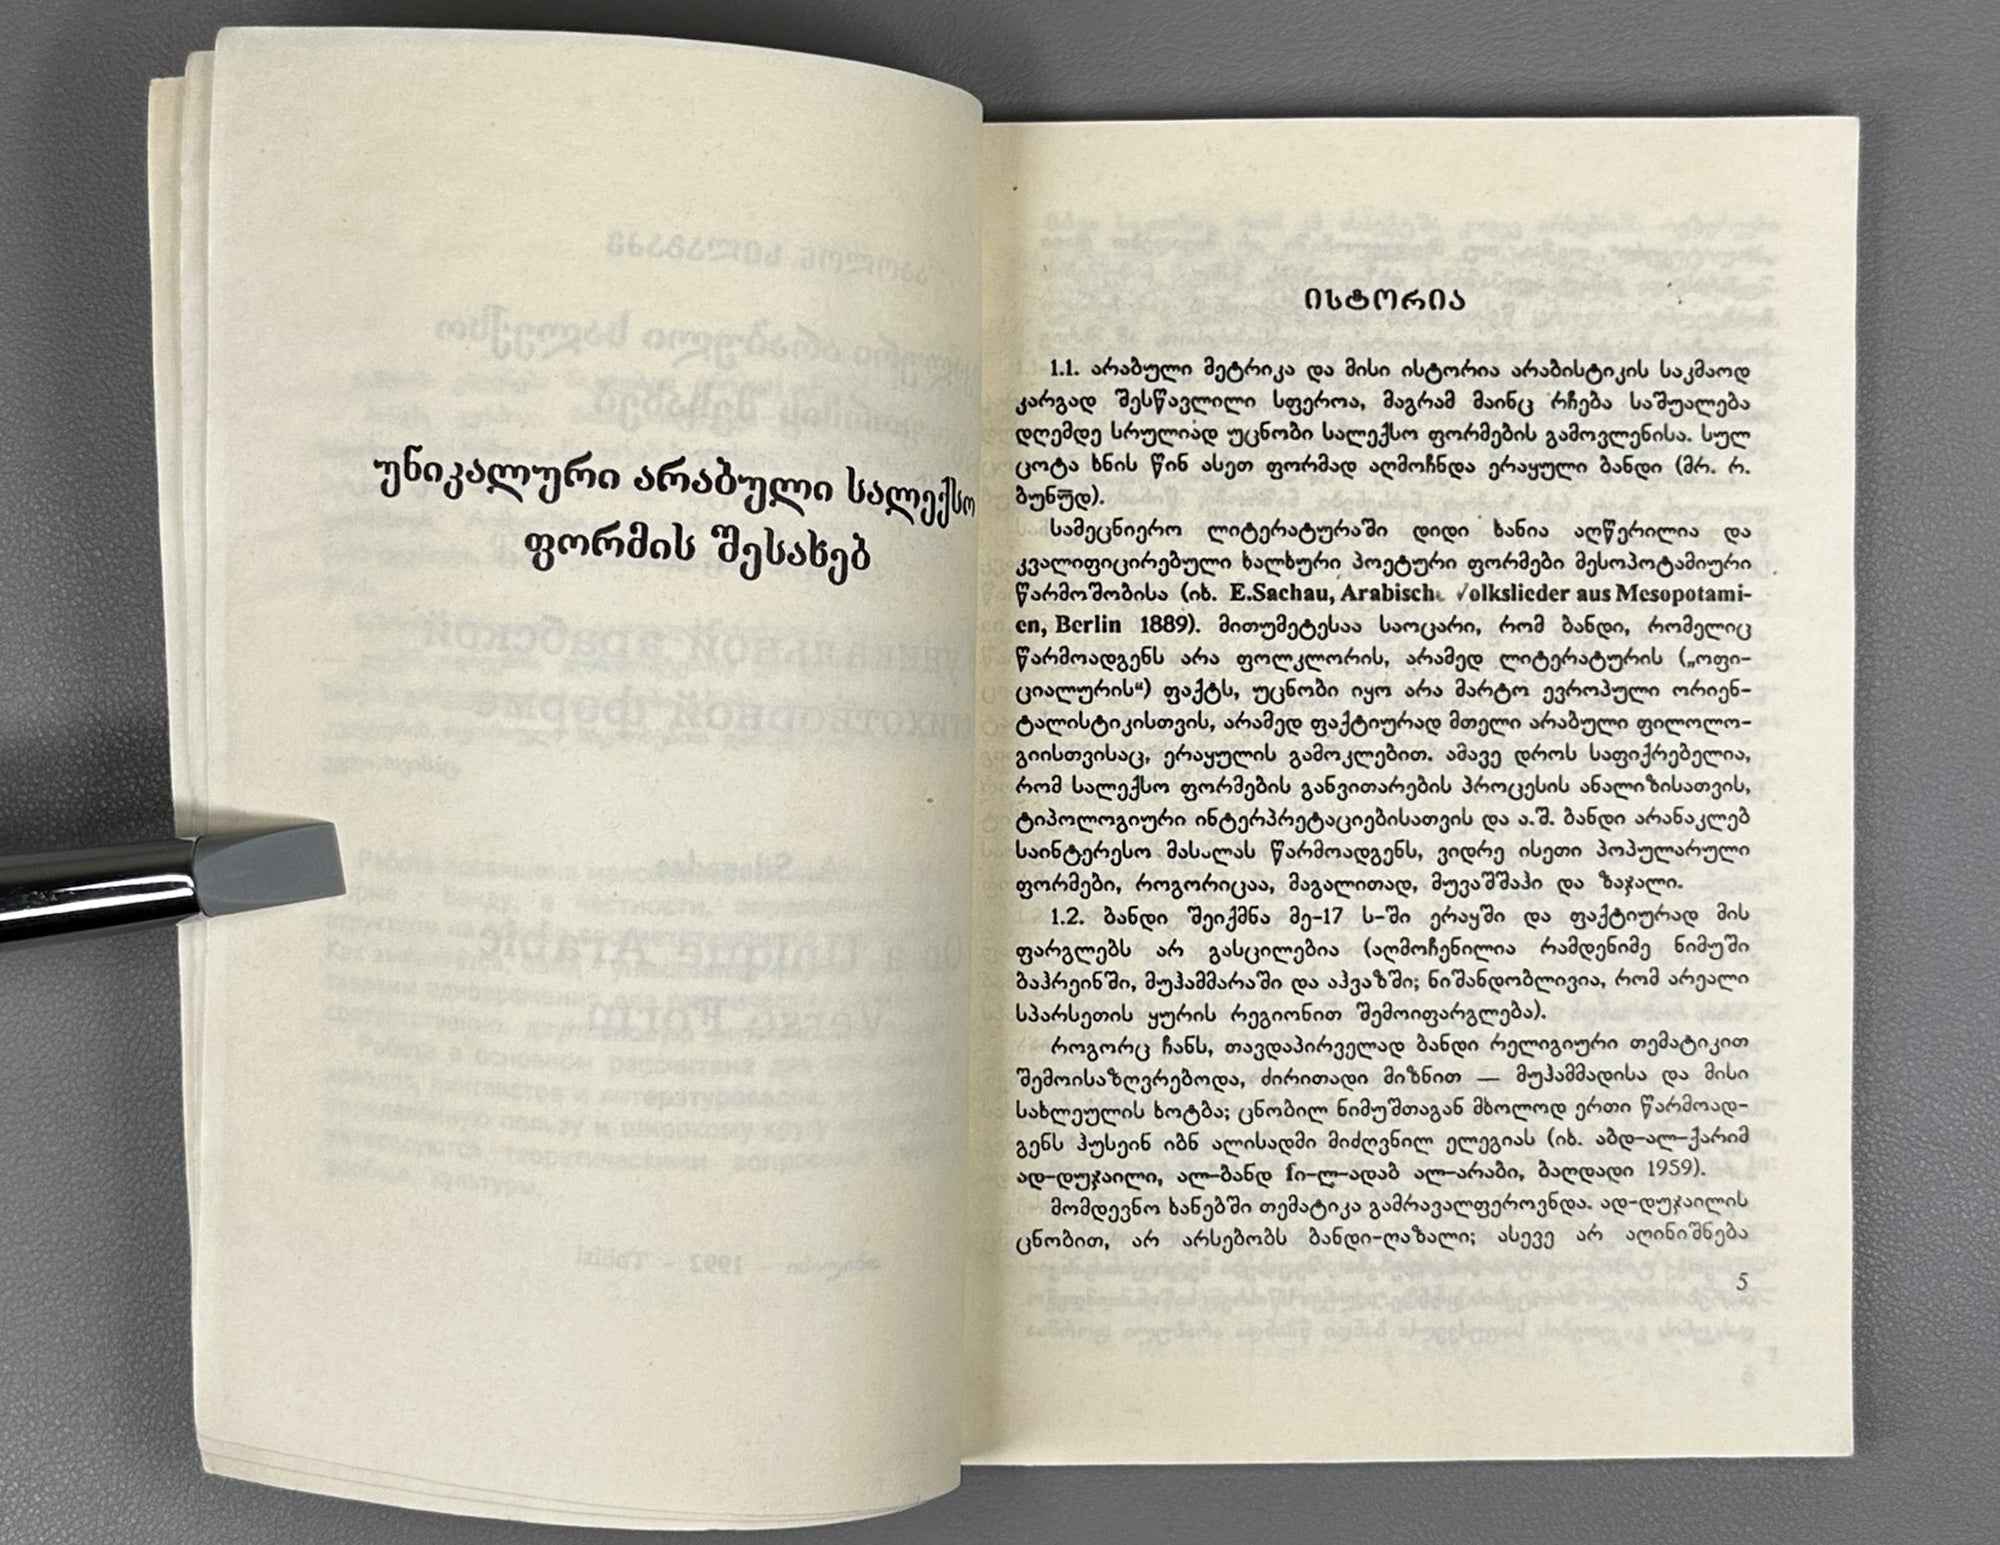 უნიკალური არაბული სალექსო
ფორმის შესახებ
ისტორია
1.1. არაბული მეტრიკა და მისი ისტორია არაბისტიკის საკმაოდ
კარგად შესწავლილი სფეროა, მაგრამ მაინც რჩება საშუალება
დღემდე სრულიად უცნობი სალექსო ფორმების გამოვლენისა. სულ
ცოტა ხნის წინ ასეთ ფორმად აღმოჩნდა ერაყული ბანდი (მრ. რ.
ბუნუ̄დ).
სამეცნიერო ლიტერატურაში დიდი ხანია აღწერილია და
კვალიფიცირებული ხალხური პოეტური ფორმები მესოპოტამიური
წარმოშობისა (იხ. E.Sachau, Arabische Volkslieder aus Mesopotami-
en, Berlin 1889). მითუმეტესაა საოცარი, რომ ბანდი, რომელიც
წარმოადგენს არა ფოლკლორის, არამედ ლიტერატურის („ოფი-
ციალურის“) ფაქტს, უცნობი იყო არა მარტო ევროპული ორიენ-
ტალისტიკისთვის, არამედ ფაქტიურად მთელი არაბული ფილოლო-
გიისთვისაც, ერაყულის გამოკლებით. ამავე დროს საფიქრებელია,
რომ სალექსო ფორმების განვითარების პროცესის ანალიზისათვის,
ტიპოლოგიური ინტერპრეტაციებისათვის და ა.შ. ბანდი არანაკლებ
საინტერესო მასალას წარმოადგენს, ვიდრე ისეთი პოპულარული
ფორმები, როგორიცაა, მაგალითად, მუვაშშაჰი და ზაჯალი.
1.2. ბანდი შეიქმნა მე-17 ს-ში ერაყში და ფაქტიურად მის
ფარგლებს არ გასცილებია (აღმოჩენილია რამდენიმე ნიმუში
ბაჰრეინში, მუჰამმარაში და აჰვაზში; ნიშანდობლივია, რომ არეალი
სპარსეთის ყურის რეგიონით შემოიფარგლება).
როგორც ჩანს, თავდაპირველად ბანდი რელიგიური თემატიკით
შემოისაზღვრებოდა, ძირითადი მიზნით — მუჰამმადისა და მისი
სახლეულის ხოტბა; ცნობილ ნიმუშთაგან მხოლოდ ერთი წარმოად-
გენს ჰუსეინ იბნ ალისადმი მიძღვნილ ელეგიას (იხ. აბდ-ალ-ქარიმ
ად-დუჯაილი, ალ-ბანდ fი-ლ-ადაბ ალ-არაბი, ბაღდადი 1959).
მომდევნო ხანებში თემატიკა გამრავალფეროვნდა. ად-დუჯაილის
ცნობით, არ არსებობს ბანდი-ღაზალი; ასევე არ აღინიშნება
5